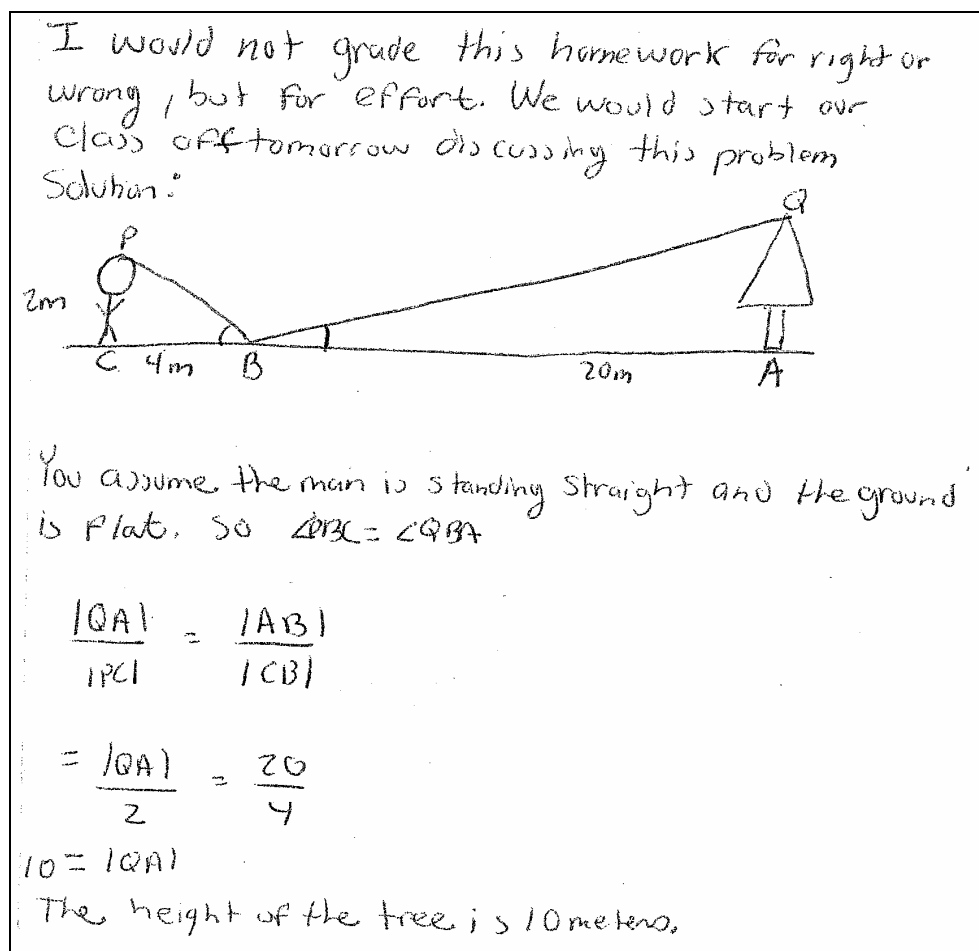 I would not grade this homework for right or
wrong, but for effort. We would start our
class off tomorrow discussing this problem
Solution:
Q
P
2m
C 4m B 20m A
You assume the man is standing straight and the ground
is flat. So ∠PBC = ∠QBA
|QA| / |PC| = |AB| / |CB|
= |QA| / 2 = 20 / 4
10 = |QA|
The height of the tree is 10 meters.